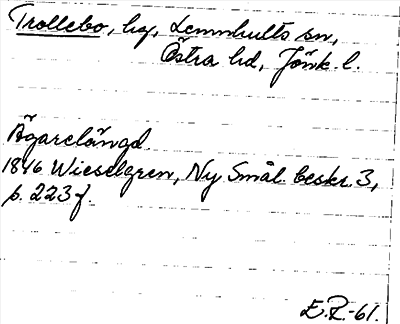 Trollebo, hg, Lemnhults sn,
Östra hd, Jönk. l.
Ägarelängd
1846 Wieselgren, Ny Smål. beskr. 3,
p. 223 f.
E.R.-61.